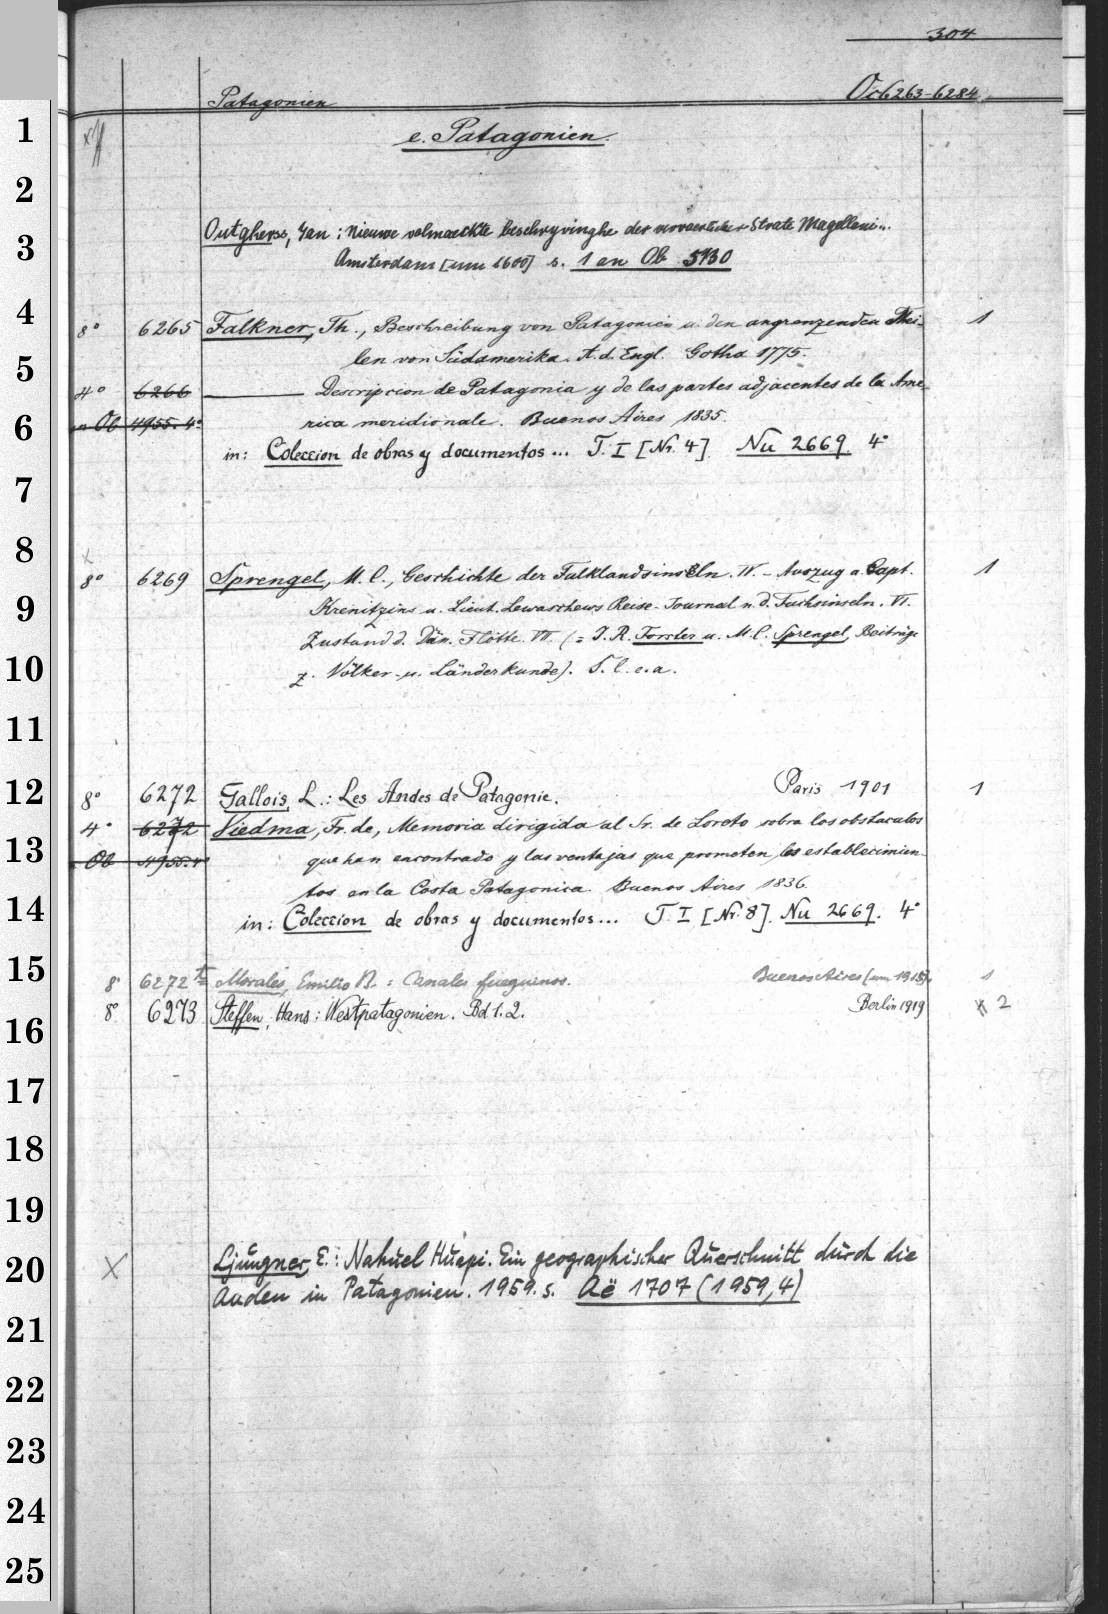 304
Patagonien
Oc 6263-6284
e. Patagonien.
Outgherss, Jan: nieuwe volmaeckte beschryvinghe der Strate Magellani...
Amsterdam [um 1600] s. 1 an Ob 5130
8° 6265 Falkner, Th., Beschreibung von Patagonien u. den angrenzenden Thei- 1
len von Südamerika. A. d. Engl. Gotha 1775.
4° 6266 ——— Descripcion de Patagonia y de las partes adjacentes de la Ame-
Ob 4955. 4° rica meridionale. Buenos Aires 1835.
in: Coleccion de obras y documentos... T. I [Nr. 4]. Nu 2669. 4°
8° 6269 Sprengel, M. C., Geschichte der Falklandsinseln. IV. - Auszug a. Capt. 1
Krenitzins u. Lieut. Lewaschews Reise-Journal n. d. Fuchsinseln. VI.
Zustand d. Dän. Flotte. VII. (= J. R. Forster u. M. C. Sprengel, Beiträge
z. Völker- u. Länderkunde). S. l. e. a.
8° 6272 Gallois, L.: Les Andes de Patagonie. Paris 1901 1
4° 6272 Viedma, Fr. de, Memoria dirigida al Sr. de Loreto sobra los obstaculos
Ob 4955. 4° que han encontrado y las ventajas que prometen los establecimien-
tos en la Costa Patagonica. Buenos Aires 1836.
in: Coleccion de obras y documentos... T. I [Nr. 8]. Nu 2669. 4°
8° 6272 Morales, Emilio B.: Canales fueguinos. Buenos Aires (um 1915). 1
8° 6273 Steffen, Hans: Westpatagonien. Bd 1. 2. Berlin 1919 2
X Ljungner, E.: Nahuel Huapi. Ein geographischer Querschnitt durch die
Anden in Patagonien. 1959. s. Aë 1707 (1959,4)
1
2
3
4
5
6
7
8
9
10
11
12
13
14
15
16
17
18
19
20
21
22
23
24
25